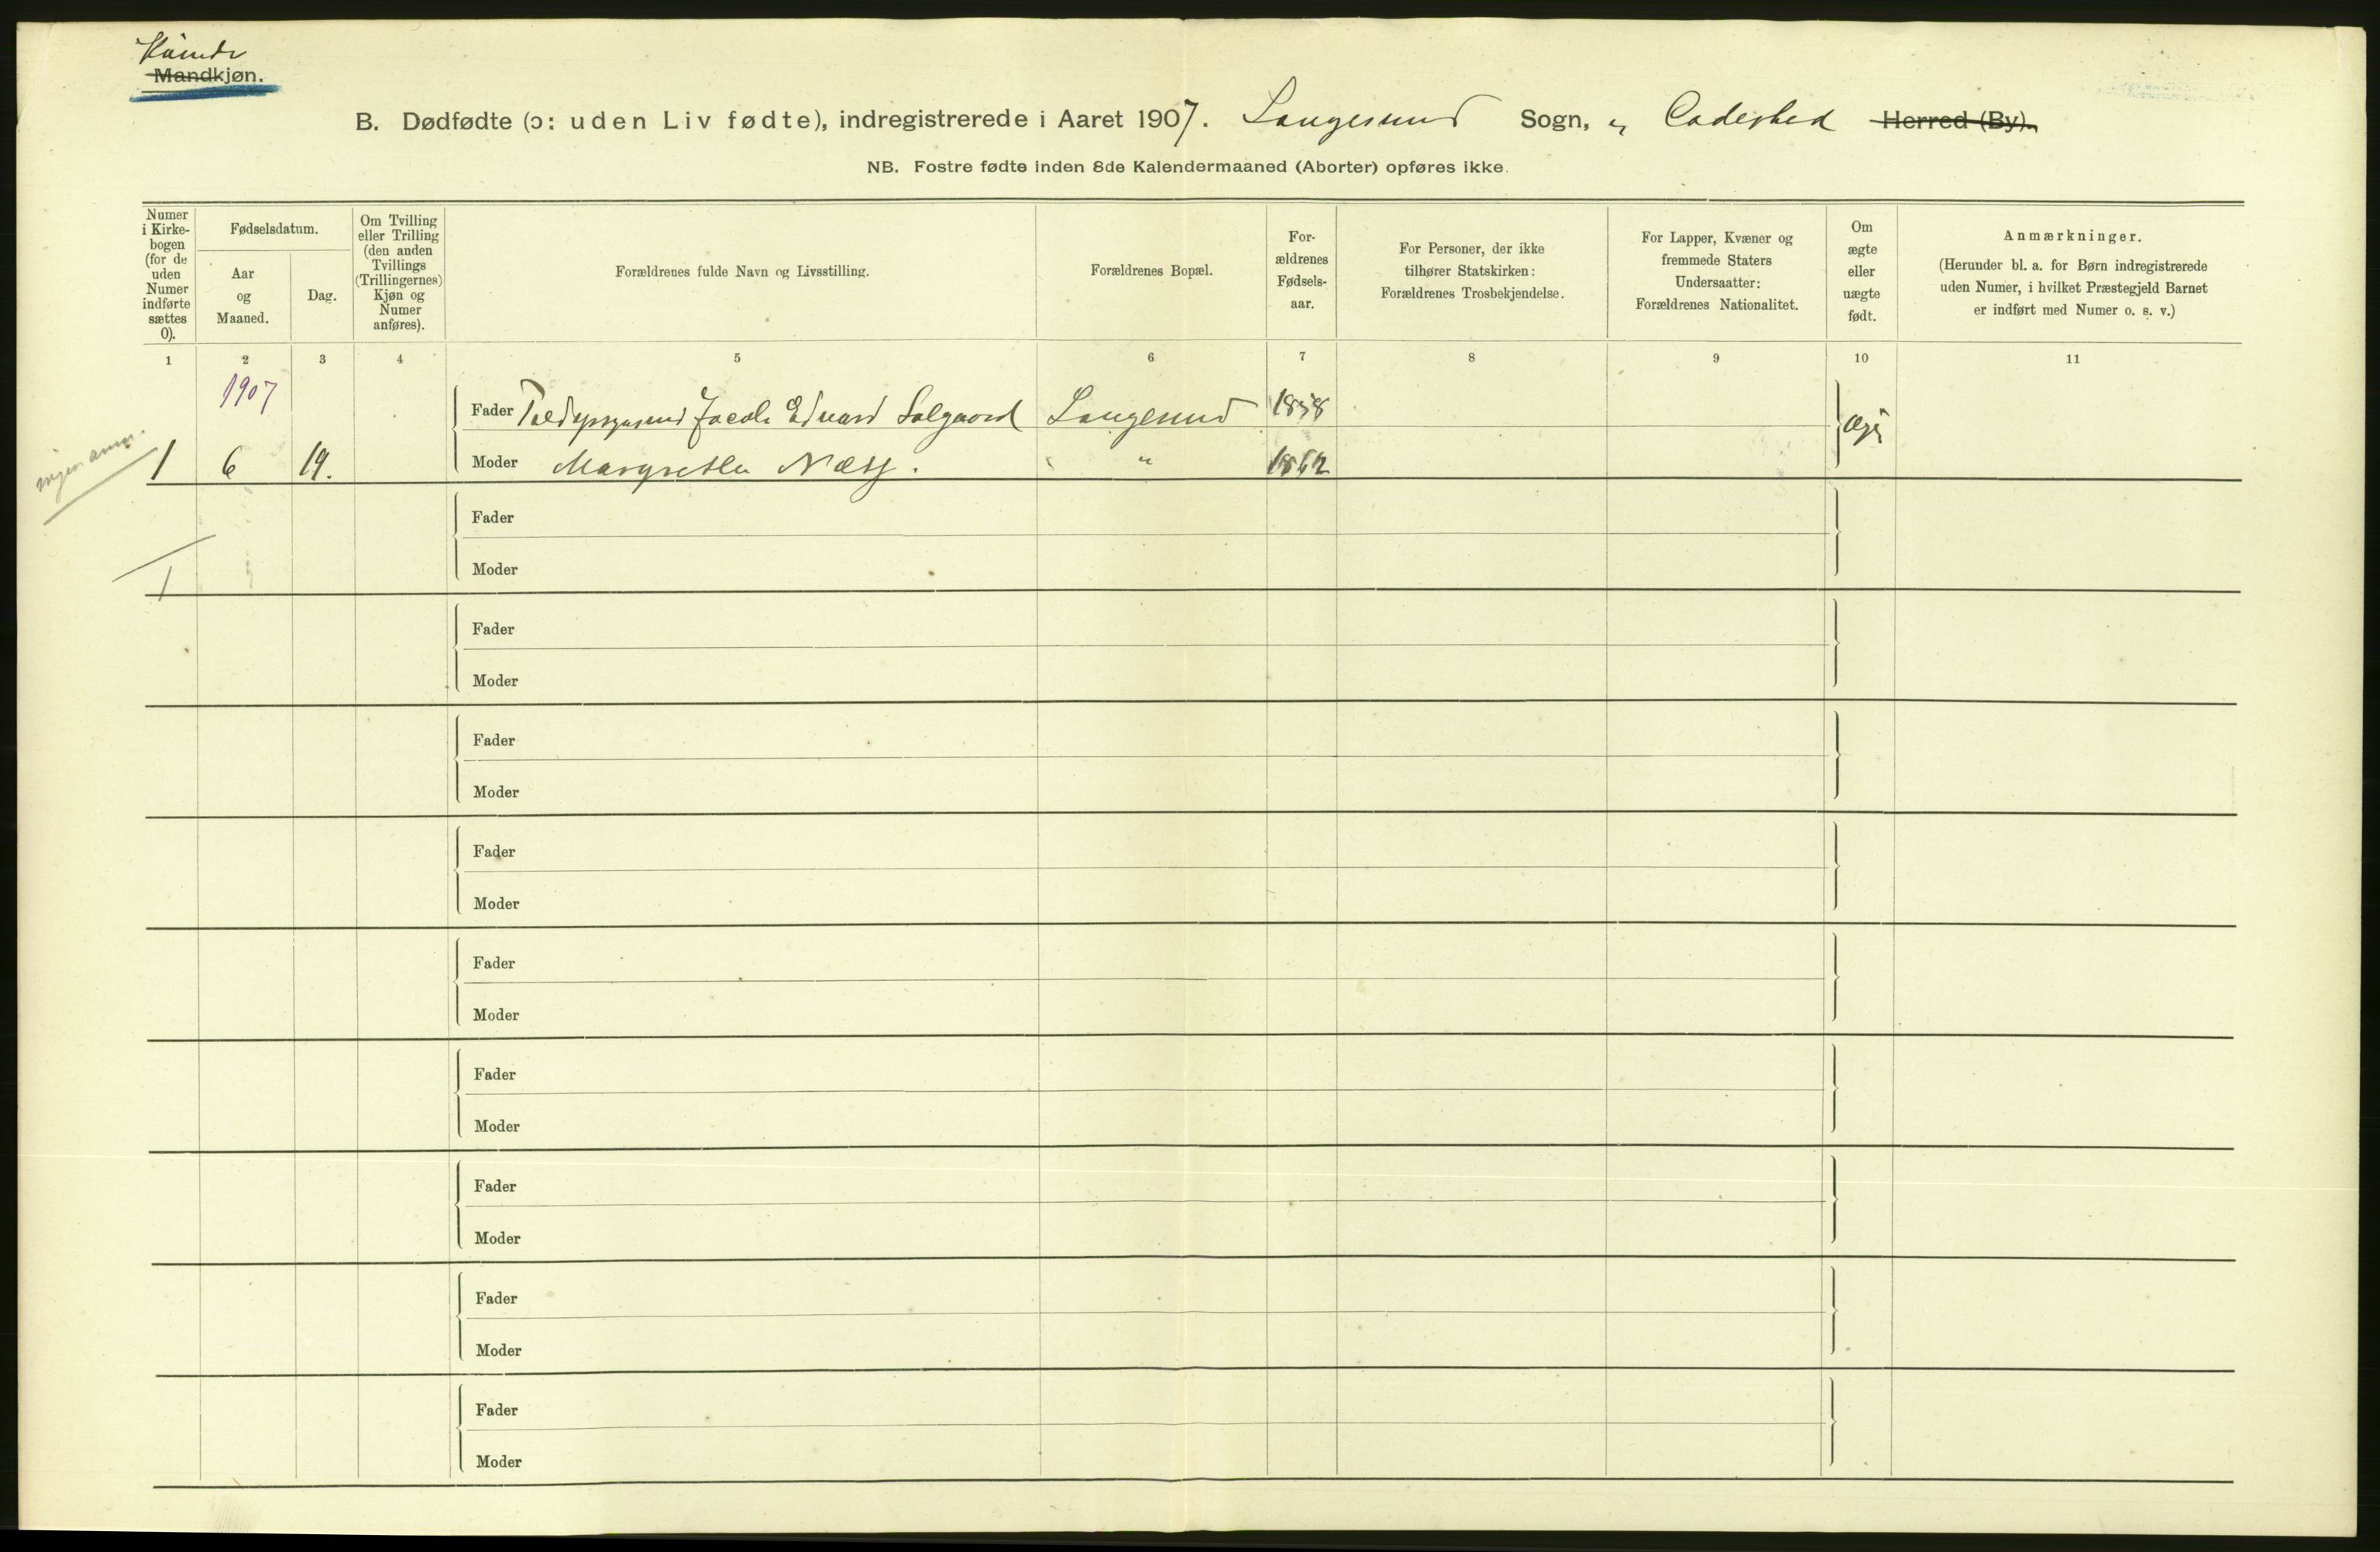 Kvinde
Mandkjøn.
B. Dødfødte (ɔ: uden Liv fødte), indregistrerede i Aaret 1907. Langesund Sogn, og Ladested Herred (By).
NB. Fostre fødte inden 8de Kalendermaaned (Aborter) opføres ikke.
Numer i Kirkebogen (for de uden Numer indførte sættes 0).
Fødselsdatum.
Aar og Maaned.
Dag.
Om Tvilling eller Trilling (den anden Tvillings (Trillingernes) Kjøn og Numer anføres).
Forældrenes fulde Navn og Livsstilling.
Forældrenes Bopæl.
Forældrenes Fødselsaar.
For Personer, der ikke tilhører Statskirken: Forældrenes Trosbekjendelse.
For Lapper, Kvæner og fremmede Staters Undersaatter: Forældrenes Nationalitet.
Om ægte eller uægte født.
Anmærkninger.
(Herunder bl. a. for Børn indregistrerede uden Numer, i hvilket Præstegjeld Barnet er indført med Numer o. s. v.)
1 2 3 4 5 6 7 8 9 10 11
1907
Fader Jacob Edvard Salgaard Langesund 1858
1 6 19. Moder Margrethe Næss. " 1862
Fader
1
Moder
Fader
Moder
Fader
Moder
Fader
Moder
Fader
Moder
Fader
Moder
Fader
Moder
Fader
Moder
Fader
Moder